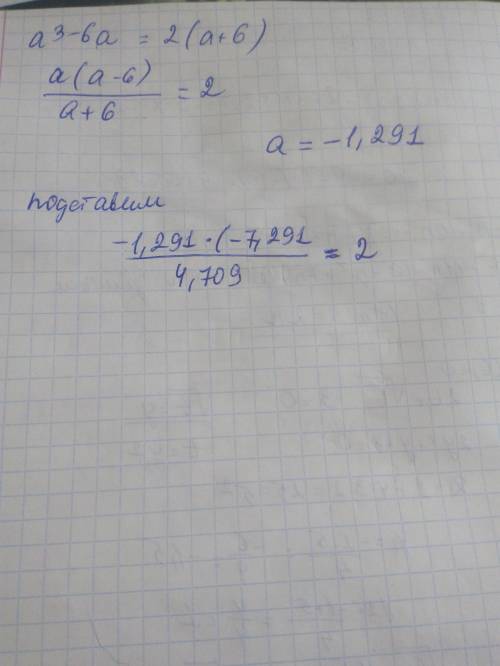 a3-6a = 2(a+6)
a(a-6)/a+6 = 2
a = -1,291
подставим
-1,291·(-7,291/4,709 = 2